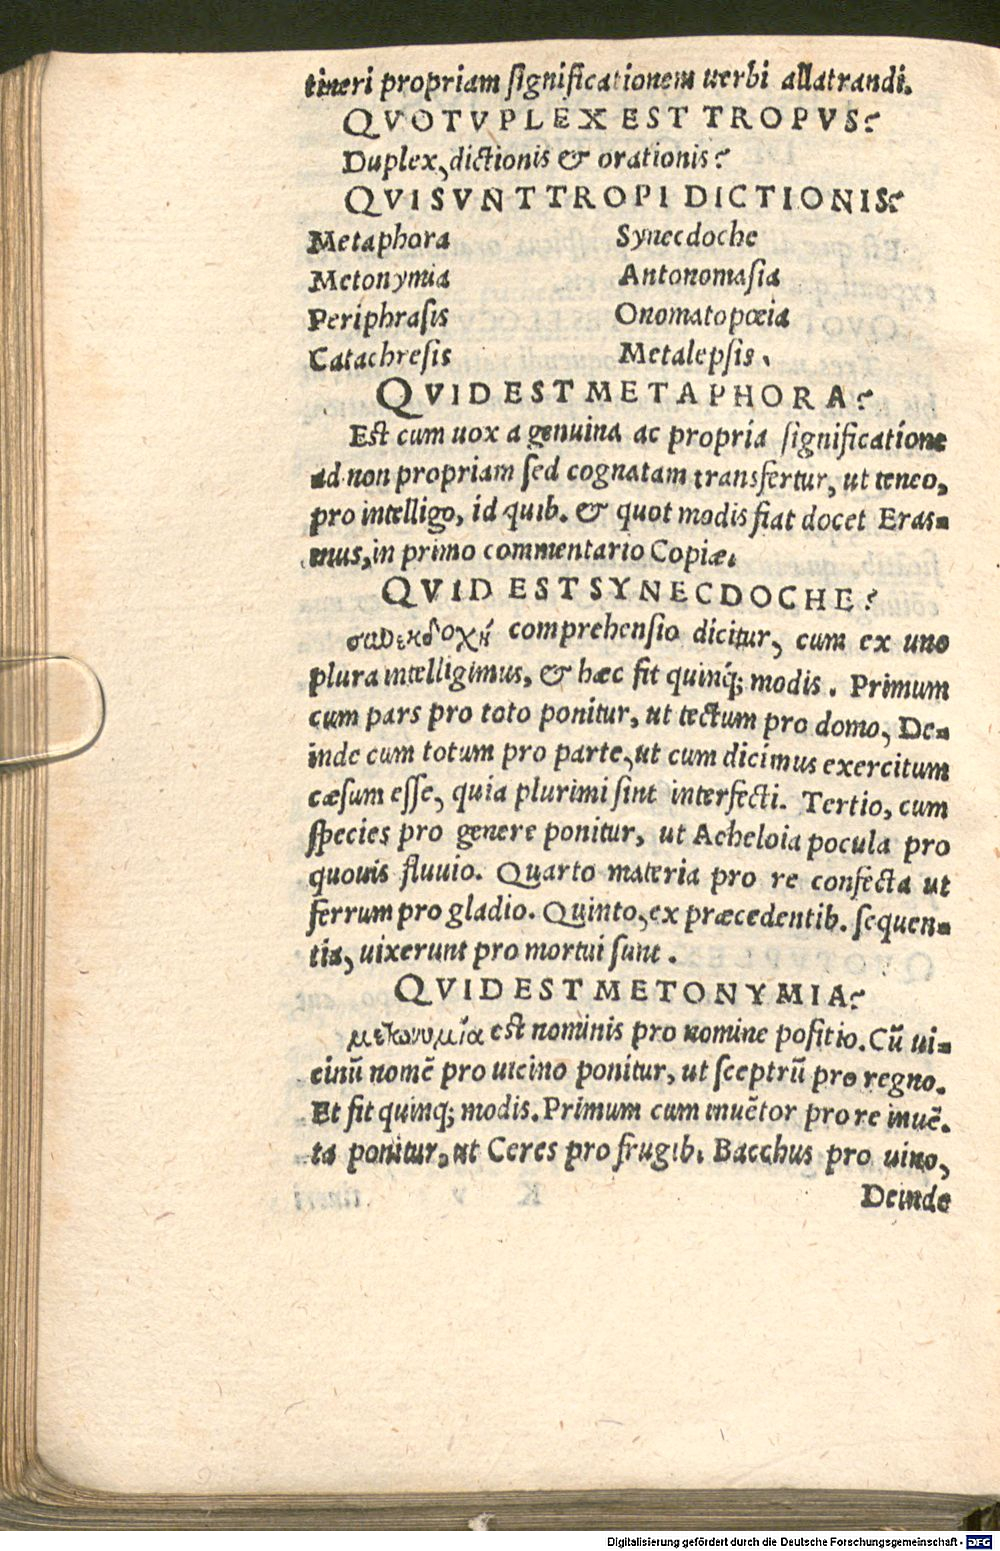 tineri propriam significationem uerbi allatrandi.
QVOTVPLEX EST TROPVS?
Duplex, dictionis & orationis?
QVI SVNT TROPI DICTIONIS?
Metaphora Synecdoche
Metonymia Antonomasia
Periphrasis Onomatopœia
Catachresis Metalepsis.
QVID EST METAPHORA?
Est cum uox a genuina ac propria significatione
ad non propriam sed cognatam transfertur, ut teneo,
pro intelligo, id quib. & quot modis fiat docet Eras-
mus, in primo commentario Copiæ.
QVID EST SYNECDOCHE?
συνεκδοχὴ comprehensio dicitur, cum ex uno
plura intelligimus, & hæc fit quinq; modis. Primum
cum pars pro toto ponitur, ut tectum pro domo, De-
inde cum totum pro parte, ut cum dicimus exercitum
cæsum esse, quia plurimi sint interfecti. Tertio, cum
species pro genere ponitur, ut Acheloia pocula pro
quouis fluuio. Quarto materia pro re confecta ut
ferrum pro gladio. Quinto, ex præcedentib. sequen-
tia, uixerunt pro mortui sunt.
QVID EST METONYMIA?
μετωνυμία est nominis pro nomine positio. Cū ui-
cinū nomē pro uicino ponitur, ut sceptrū pro regno.
Et fit quinq; modis. Primum cum inuētor pro re inuē-
ta ponitur, ut Ceres pro frugib. Bacchus pro uino,
Deinde
Digitalisierung gefördert durch die Deutsche Forschungsgemeinschaft - DFG